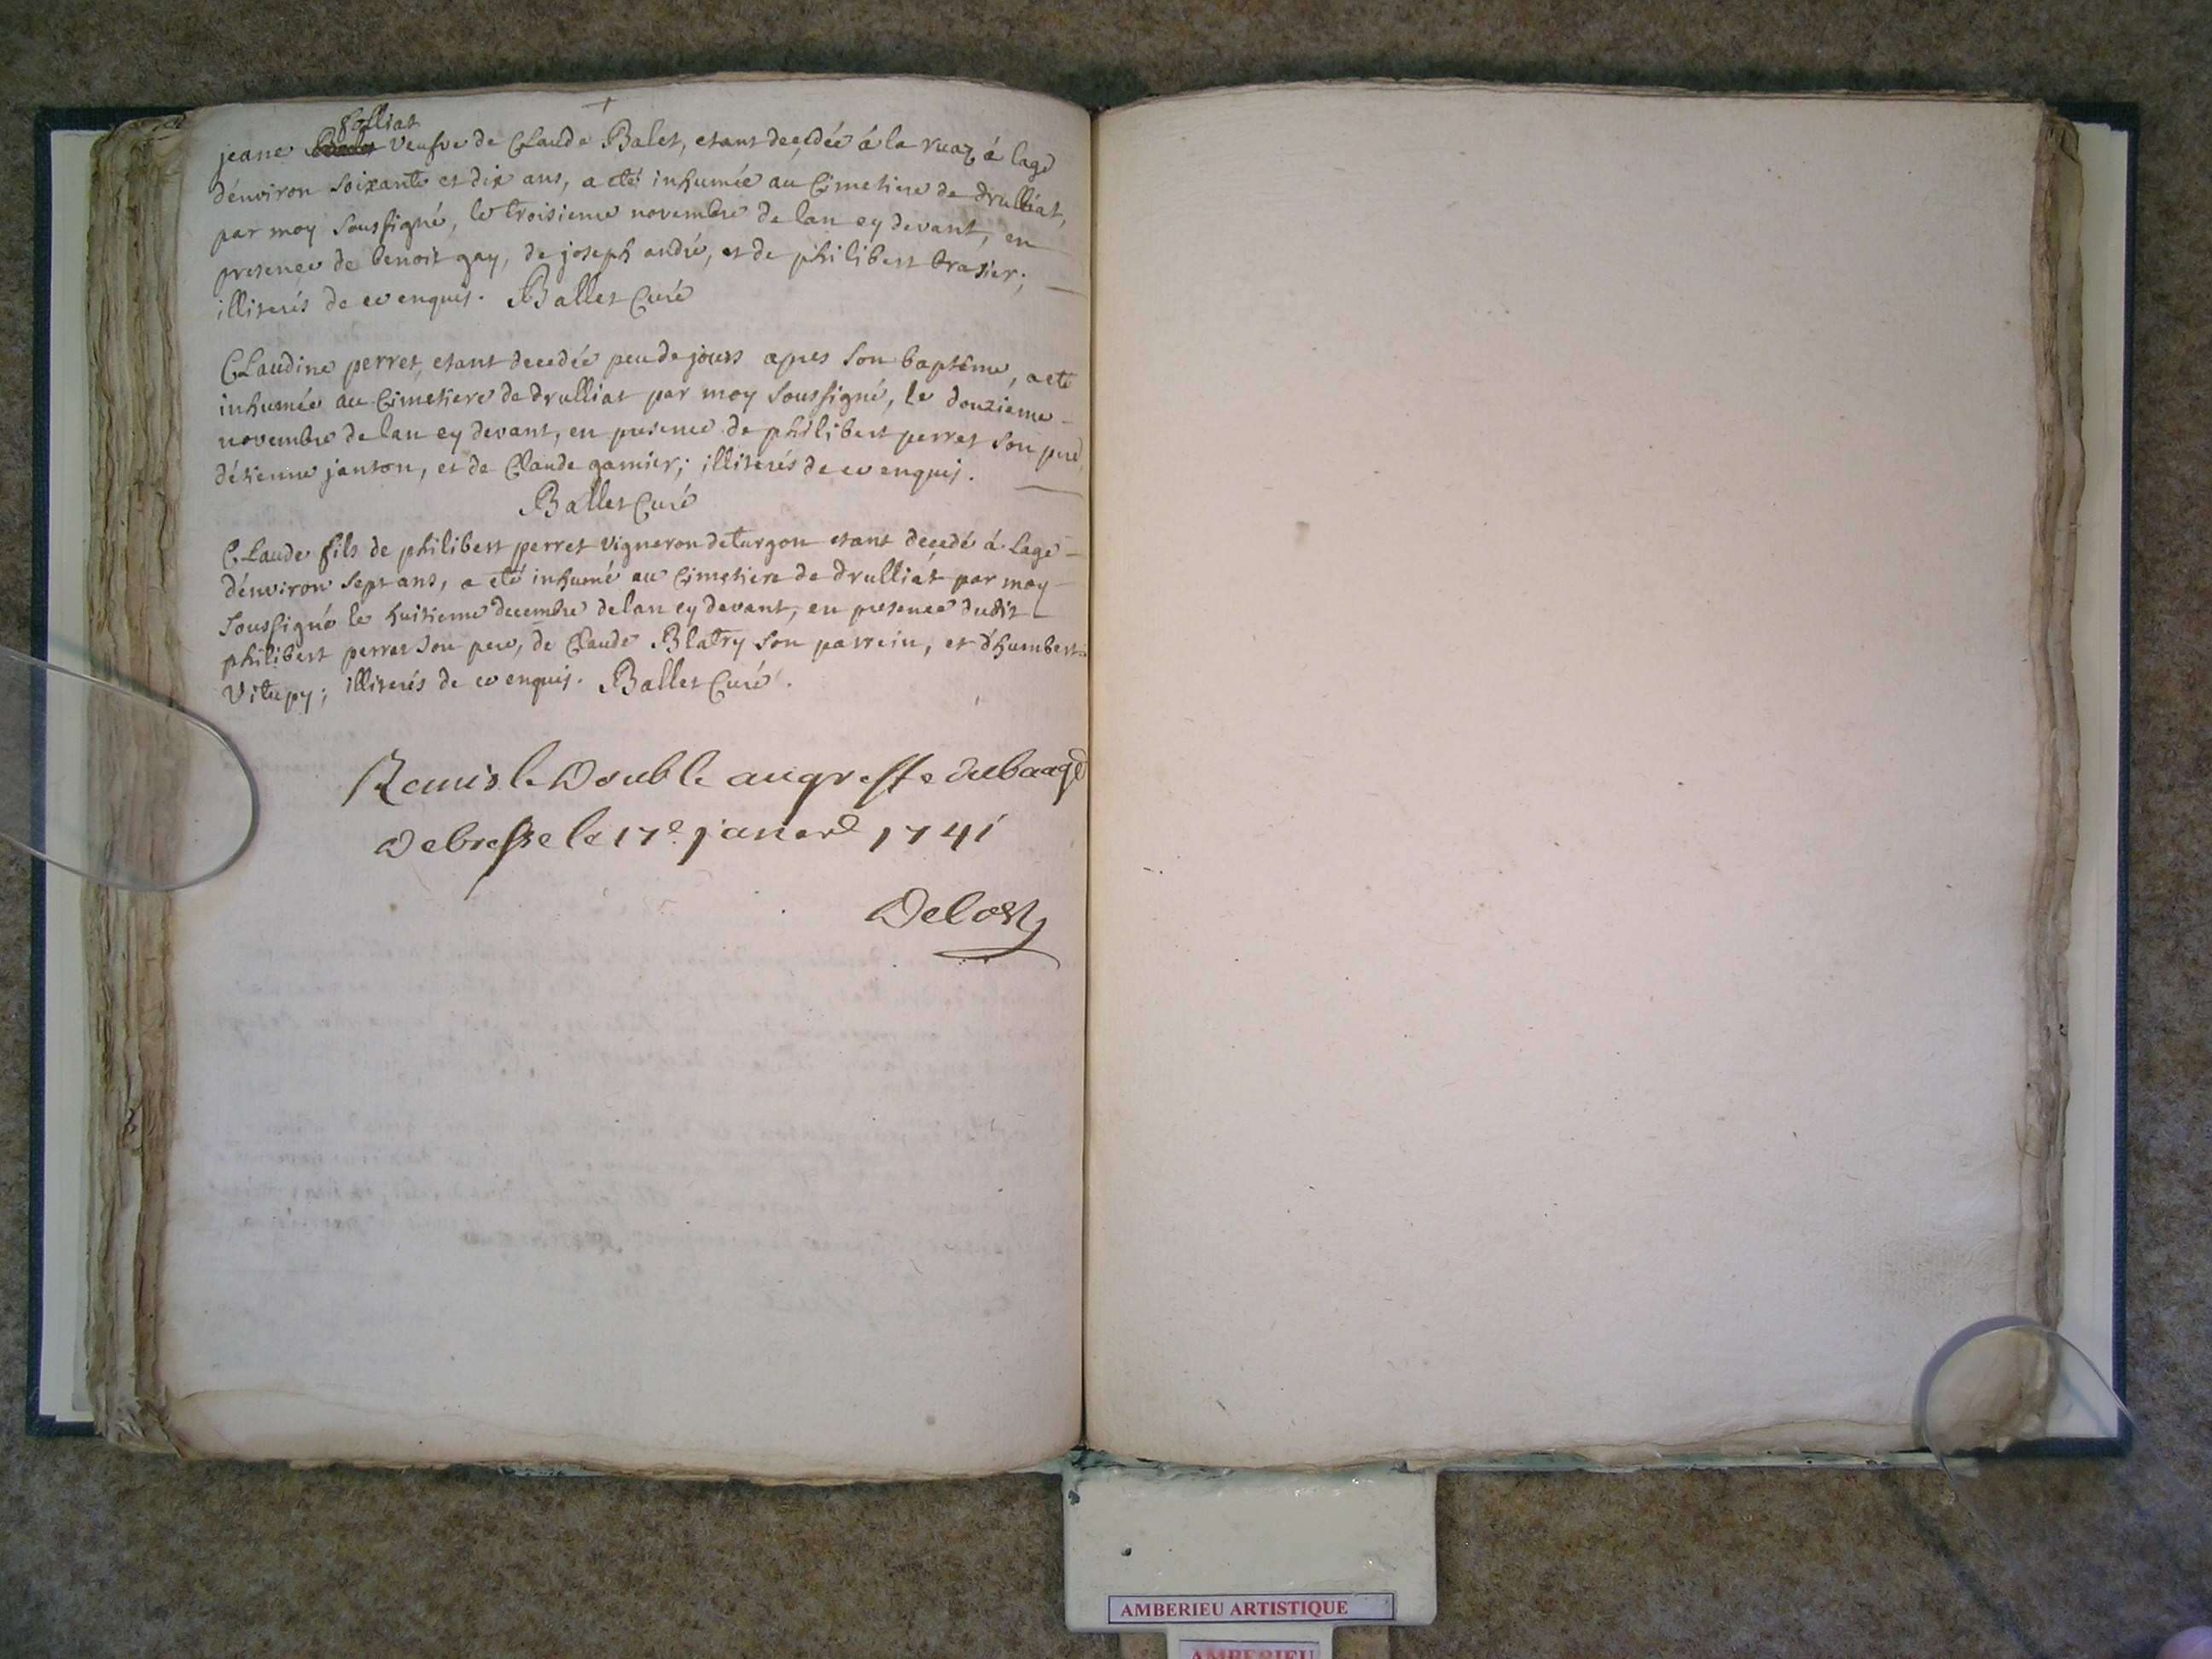 folliat
jeane veufve de Claude Balet, etant decedée á la ruaz á lage
d'environ soixante et dix ans, a eté inhumée au Cimetiere de drulliat,
par moy soussigné, le troisieme novembre de lan cy devant, en
presence de benoit gay, de joseph andré, et de philibert brasier;
illiterés de ce enquis. Ballet Curé
Claudine perret, etant decedée peu de jours apres son baptême, a eté
inhumée au Cimetiere de drulliat par moy soussigné, le douzieme
novembre de lan cy devant, en presence de philibert perret son pere,
d'étienne janton, et de Claude garnier; illiterés de ce enquis.
Ballet Curé
Claude fils de philibert perret vigneron de turgon etant decedé á lage
d'environ sept ans, a eté inhumé au Cimetiere de drulliat par moy
soussigné le huitieme decembre de lan cy devant, en presence dudit
philibert perret son pere, de Claude Blatry son parrein, et d'humbert
Vitupy; illiterés de ce enquis. Ballet Curé.
Remis le Double au greffe du baage
De bresse le 17e janier 1741
AMBERIEU ARTISTIQUE
AMBERIEU